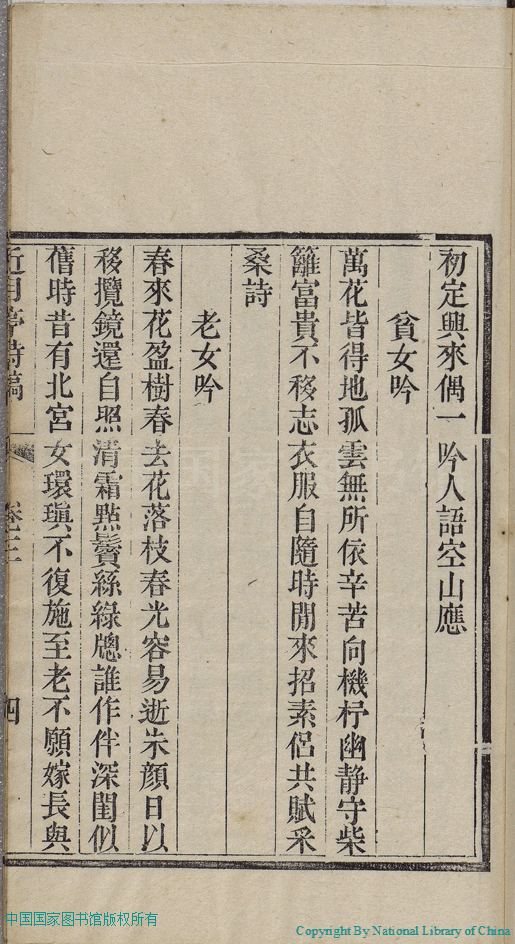 初定興來偶一吟人語空山應
貧女吟
萬花皆得地孤雲無所依辛苦向機杼幽靜守柴
籬富貴不移志衣服自隨時閒來招素侶共賦采
桑詩
老女吟
春來花盈樹春去花落枝春光容易逝朱顔日以
移攬鏡還自照清霜點鬢絲綠牕誰作伴深閨似
舊時昔有北宮女環瑱不復施至老不願嫁長與
近月亭詩稿 卷三 四
中国国家图书馆版权所有
Copyright By National Library of China